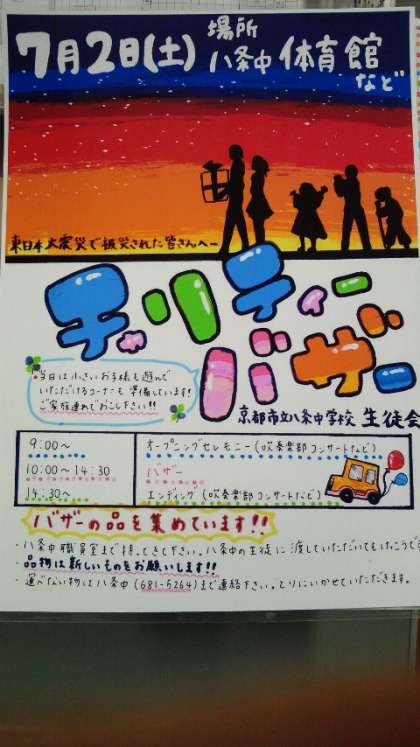 7月2日(土) 場所 八条中 体育館
など
東日本大震災で被災された皆さんへ
チャリティー
バザー
当日は小さいお子様も遊んで
いただけるコーナーも準備しています!
ご家族連れでおこし下さい!!
京都市立八条中学校 生徒会
9:00〜 オープニングセレモニー(吹奏楽部コンサートなど)
10:00〜14:30 バザー
14:30〜 エンディング(吹奏楽部コンサートなど)
バザーの品を集めています!!
・八条中職員室まで持ってきて下さい。八条中の生徒に渡していただいてもけっこうです
品物は新しいものをお願いします!!
・運べない物は八条中(681-5264)まで連絡下さい。とりにいかせていただきます。